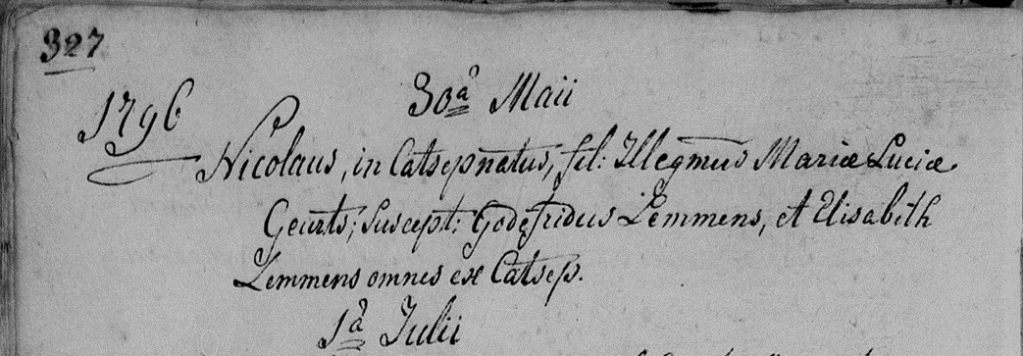 327
30ª Maii
1796
Nicolaus, in Catsep natus, fil: Illegmus Mariæ Luciæ
Geurts; suscept: Godefridus Lemmens, et Elisabith
Lemmens omnes ex Catsep.
1ª Julii